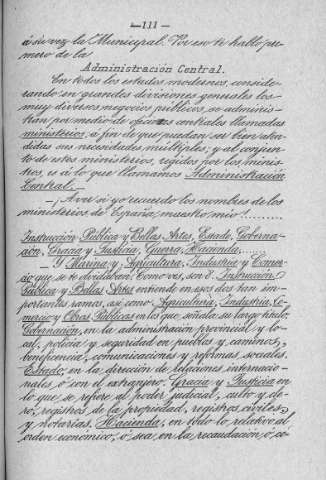 — 111 —
á su vez la Municipal. Por eso te hablo pri-
mero de la
Administración Central.
En todos los estados modernos, conside-
rando en grandes divisiones generales los
muy diversos negocios públicos, se adminis-
tran por medio de oficinas centrales llamadas
ministerios, á fin de que puedan ser bien aten-
didas sus necesidades múltiples, y al conjun-
to de estos ministerios, regidos por los minis-
tros, es á lo que llamamos Administración
Central.—
—¡A ver si yo recuerdo los nombres de los
ministerios de España, maestro mío!.........
Instrucción Pública y Bellas Artes, Estado, Goberna-
ción, Gracia y Justicia, Guerra, Hacienda........
—Y Marina y Agricultura, Industria y Comer-
cio que se te olvidaban. Como ves, son 8. Instrucción
Pública y Bellas Artes entiende en esos dos tan im-
portantes ramas, así como Agricultura, Industria, Co-
mercio y Obras Públicas en lo que señala su largo título;
Gobernación, en la administración provincial y lo-
cal, policía y seguridad en pueblos y caminos,
beneficencia, comunicaciones y reformas sociales.
Estado, en la dirección de relaciones internacio-
nales, ó con el extranjero. Gracia y Justicia en
lo que se refiere al poder judicial, culto y cle-
ro, registros de la propiedad, registros civiles,
y notarías. Hacienda, en todo lo relativo al
orden económico, ó sea, en la recaudación, ó co-